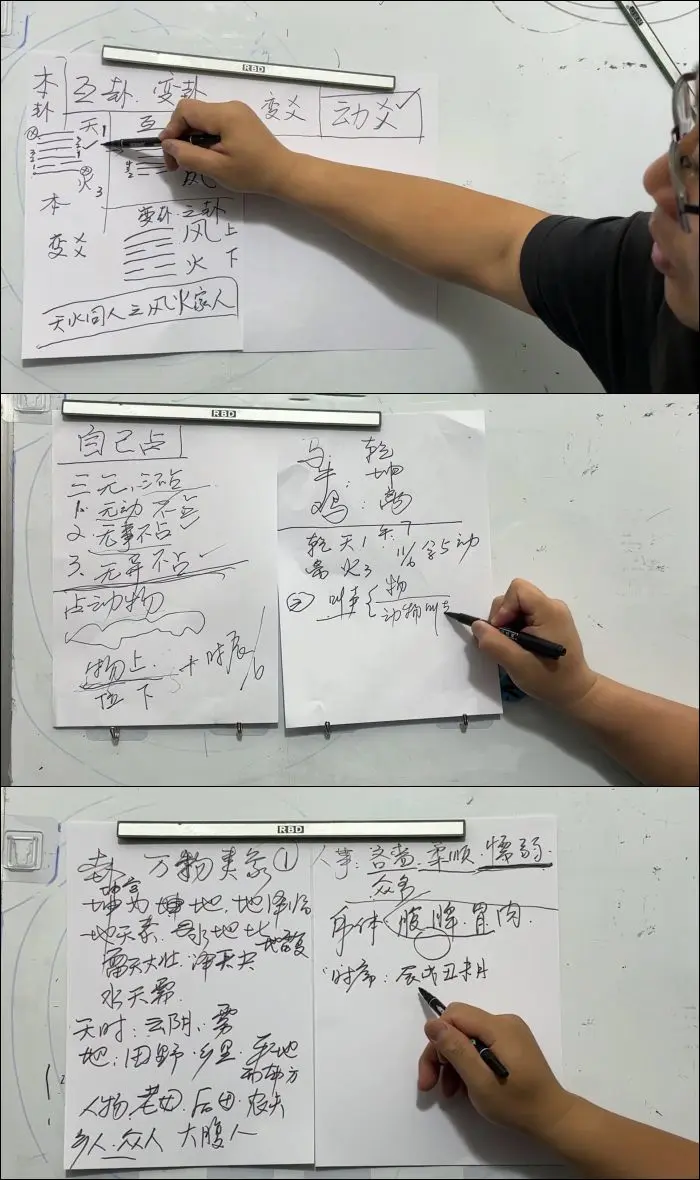 RBD
本卦
互卦.变卦
变爻
动爻✓
天 1
互
风
火 3
本
变卦 之卦
变爻
风 上
火 下
天火同人之风火家人
RBD
自己占
三无,三不占
1. 无动不占
2. 无事不占
3. 无异不占
占动物
物上
下
+时辰/6
马: 乾
牛: 坤
鸡:
乾 天1 年 7
火3 11/6 余5动
② 叫声
物
动物叫声
RBD
万物类象①
为坤地.地泽临
地天泰.水地比
地雷复
雷天大壮.泽天夬
水天需
天时:云阴.雾
地:田野.乡里.平地
西南方
人物.老母.后母.农夫
乡人.众人 大腹人
人事:吝啬.柔顺.懦弱.
众多
身体:腹.脾.胃.肉.
时序:辰戌丑未月